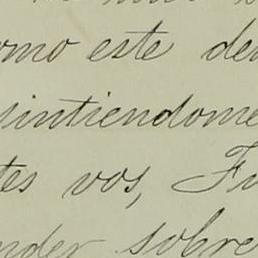 omo este de
sintiendome
tes vos, Fu
nder sobre